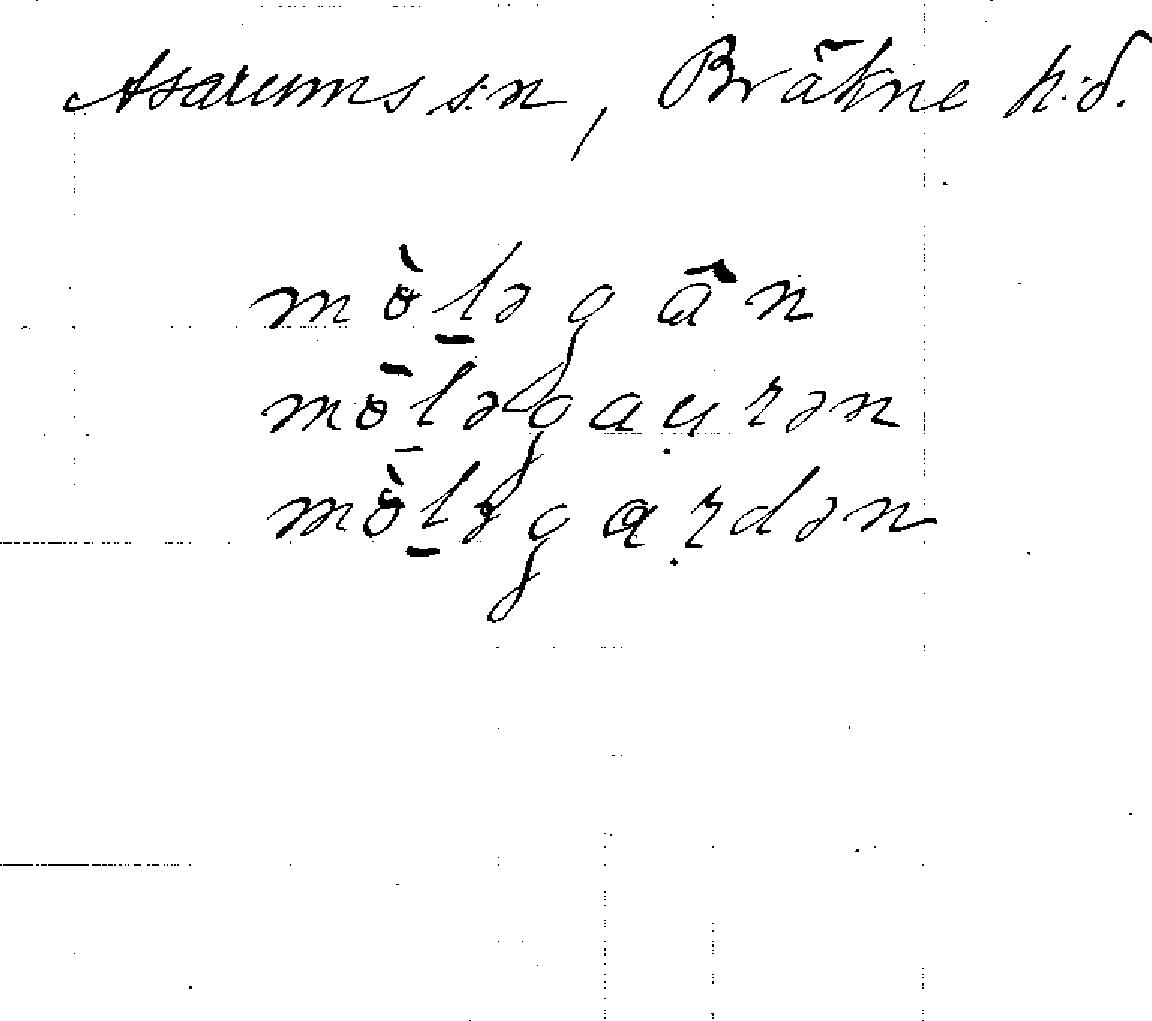 Asarums s:n, Bräkne h:d.
mö̀l̠əgân
mȫləgaụrən
mö̀l̠əgaṛdən